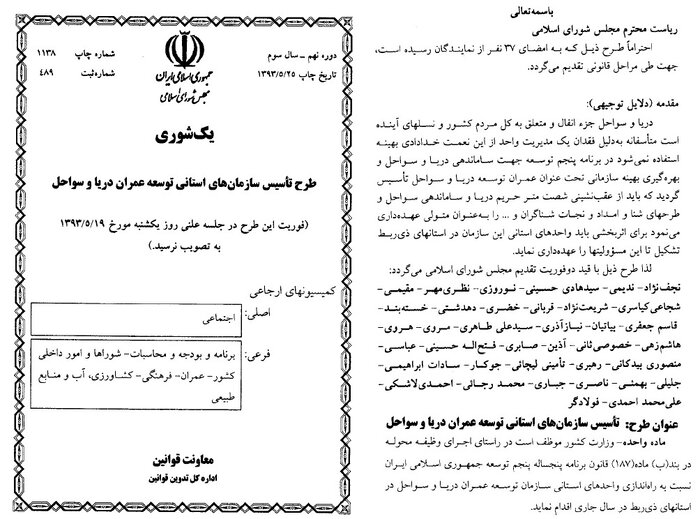 باسمه‌تعالی
ریاست محترم مجلس شورای اسلامی
احتراماً طرح ذیل که به امضای ۳۷ نفر از نمایندگان رسیده است،
جهت طی مراحل قانونی تقدیم می‌گردد.
مقدمه (دلایل توجیهی):
دریا و سواحل جزء انفال و متعلق به کل مردم کشور و نسلهای آینده
است متأسفانه به‌دلیل فقدان یک مدیریت واحد از این نعمت خدادادی بهینه
استفاده نمی‌شود در برنامه پنجم توسعه جهت ساماندهی دریا و سواحل و
بهره‌گیری بهینه سازمانی تحت عنوان عمران توسعه دریا و سواحل تأسیس
گردید که باید از عقب‌نشینی شصت متر حریم دریا و ساماندهی سواحل و
طرحهای شنا و امداد و نجات شناگران و ... را به‌عنوان متولی عهده‌داری
می‌نمود برای اثربخشی باید واحدهای استانی این سازمان در استانهای ذی‌ربط
تشکیل تا این مسؤولیتها را عهده‌داری نماید.
لذا طرح ذیل با قید دوفوریت تقدیم مجلس شورای اسلامی می‌گردد:
نجف‌نژاد- ندیمی- سیدهادی حسینی- نوروزی- نظری‌مهر- مقیمی-
شجاعی‌کیاسری- شریعت‌نژاد- قربانی- خضری- دهدشتی- خسته‌بند-
قاسم جعفری- بیاتیان- نیازآذری- سیدعلی طاهری- مروی- هروی-
هاشم‌زهی- خصوصی‌ثانی- آذین- صابری- فتح‌اله حسینی- عباسی-
منصوری بیدکانی- رهبری- تأمینی لیچائی- جوکار- سادات ابراهیمی-
جلیلی- بهمنی- ناصری- جباری- محمد رجائی- احمدی‌لاشکی-
علی‌محمد احمدی- فولادگر
عنوان طرح: تأسیس سازمان‌های استانی توسعه عمران دریا و سواحل
ماده واحده- وزارت کشور موظف است در راستای اجرای وظیفه محوله
در بند(ب) ماده(۱۸۷) قانون برنامه پنجساله پنجم توسعه جمهوری اسلامی ایران
نسبت به راه‌اندازی واحدهای استانی سازمان توسعه عمران دریا و سواحل در
استانهای ذی‌ربط در سال جاری اقدام نماید.
دوره نهم ـ سال سوم
تاریخ چاپ ۱۳۹۳/۵/۲۵
جمهوری اسلامی ایران
مجلس شورای اسلامی
شماره چاپ ۱۱۳۸
شماره ثبت ۴۸۹
یک‌شوری
طرح تأسیس سازمان‌های استانی توسعه عمران دریا و سواحل
(فوریت این طرح در جلسه علنی روز یکشنبه مورخ ۱۳۹۳/۵/۱۹
به تصویب نرسید.)
کمیسیونهای ارجاعی
اصلی: اجتماعی
فرعی: برنامه و بودجه و محاسبات- شوراها و امور داخلی
کشور- عمران- فرهنگی- کشاورزی، آب و منابع
طبیعی
معاونت قوانین
اداره کل تدوین قوانین